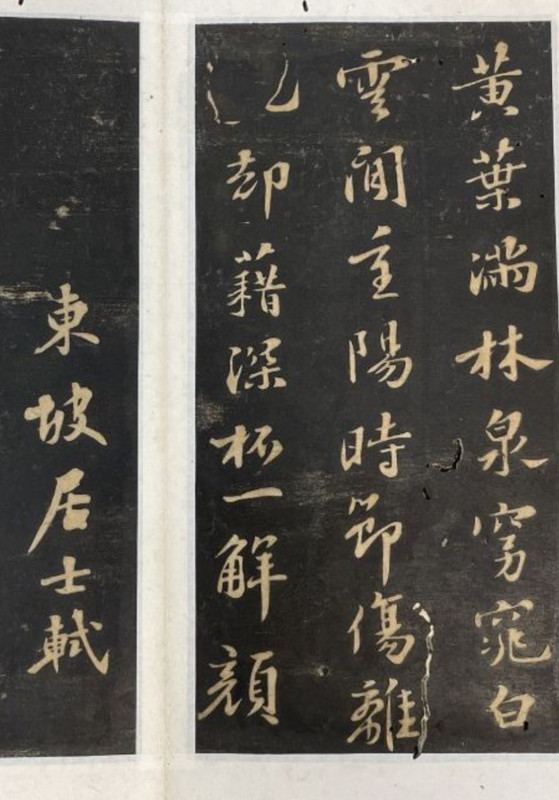 黃葉滿林泉窈窕白
雲間重陽時節傷離
却藉深杯一解顏
東坡居士軾